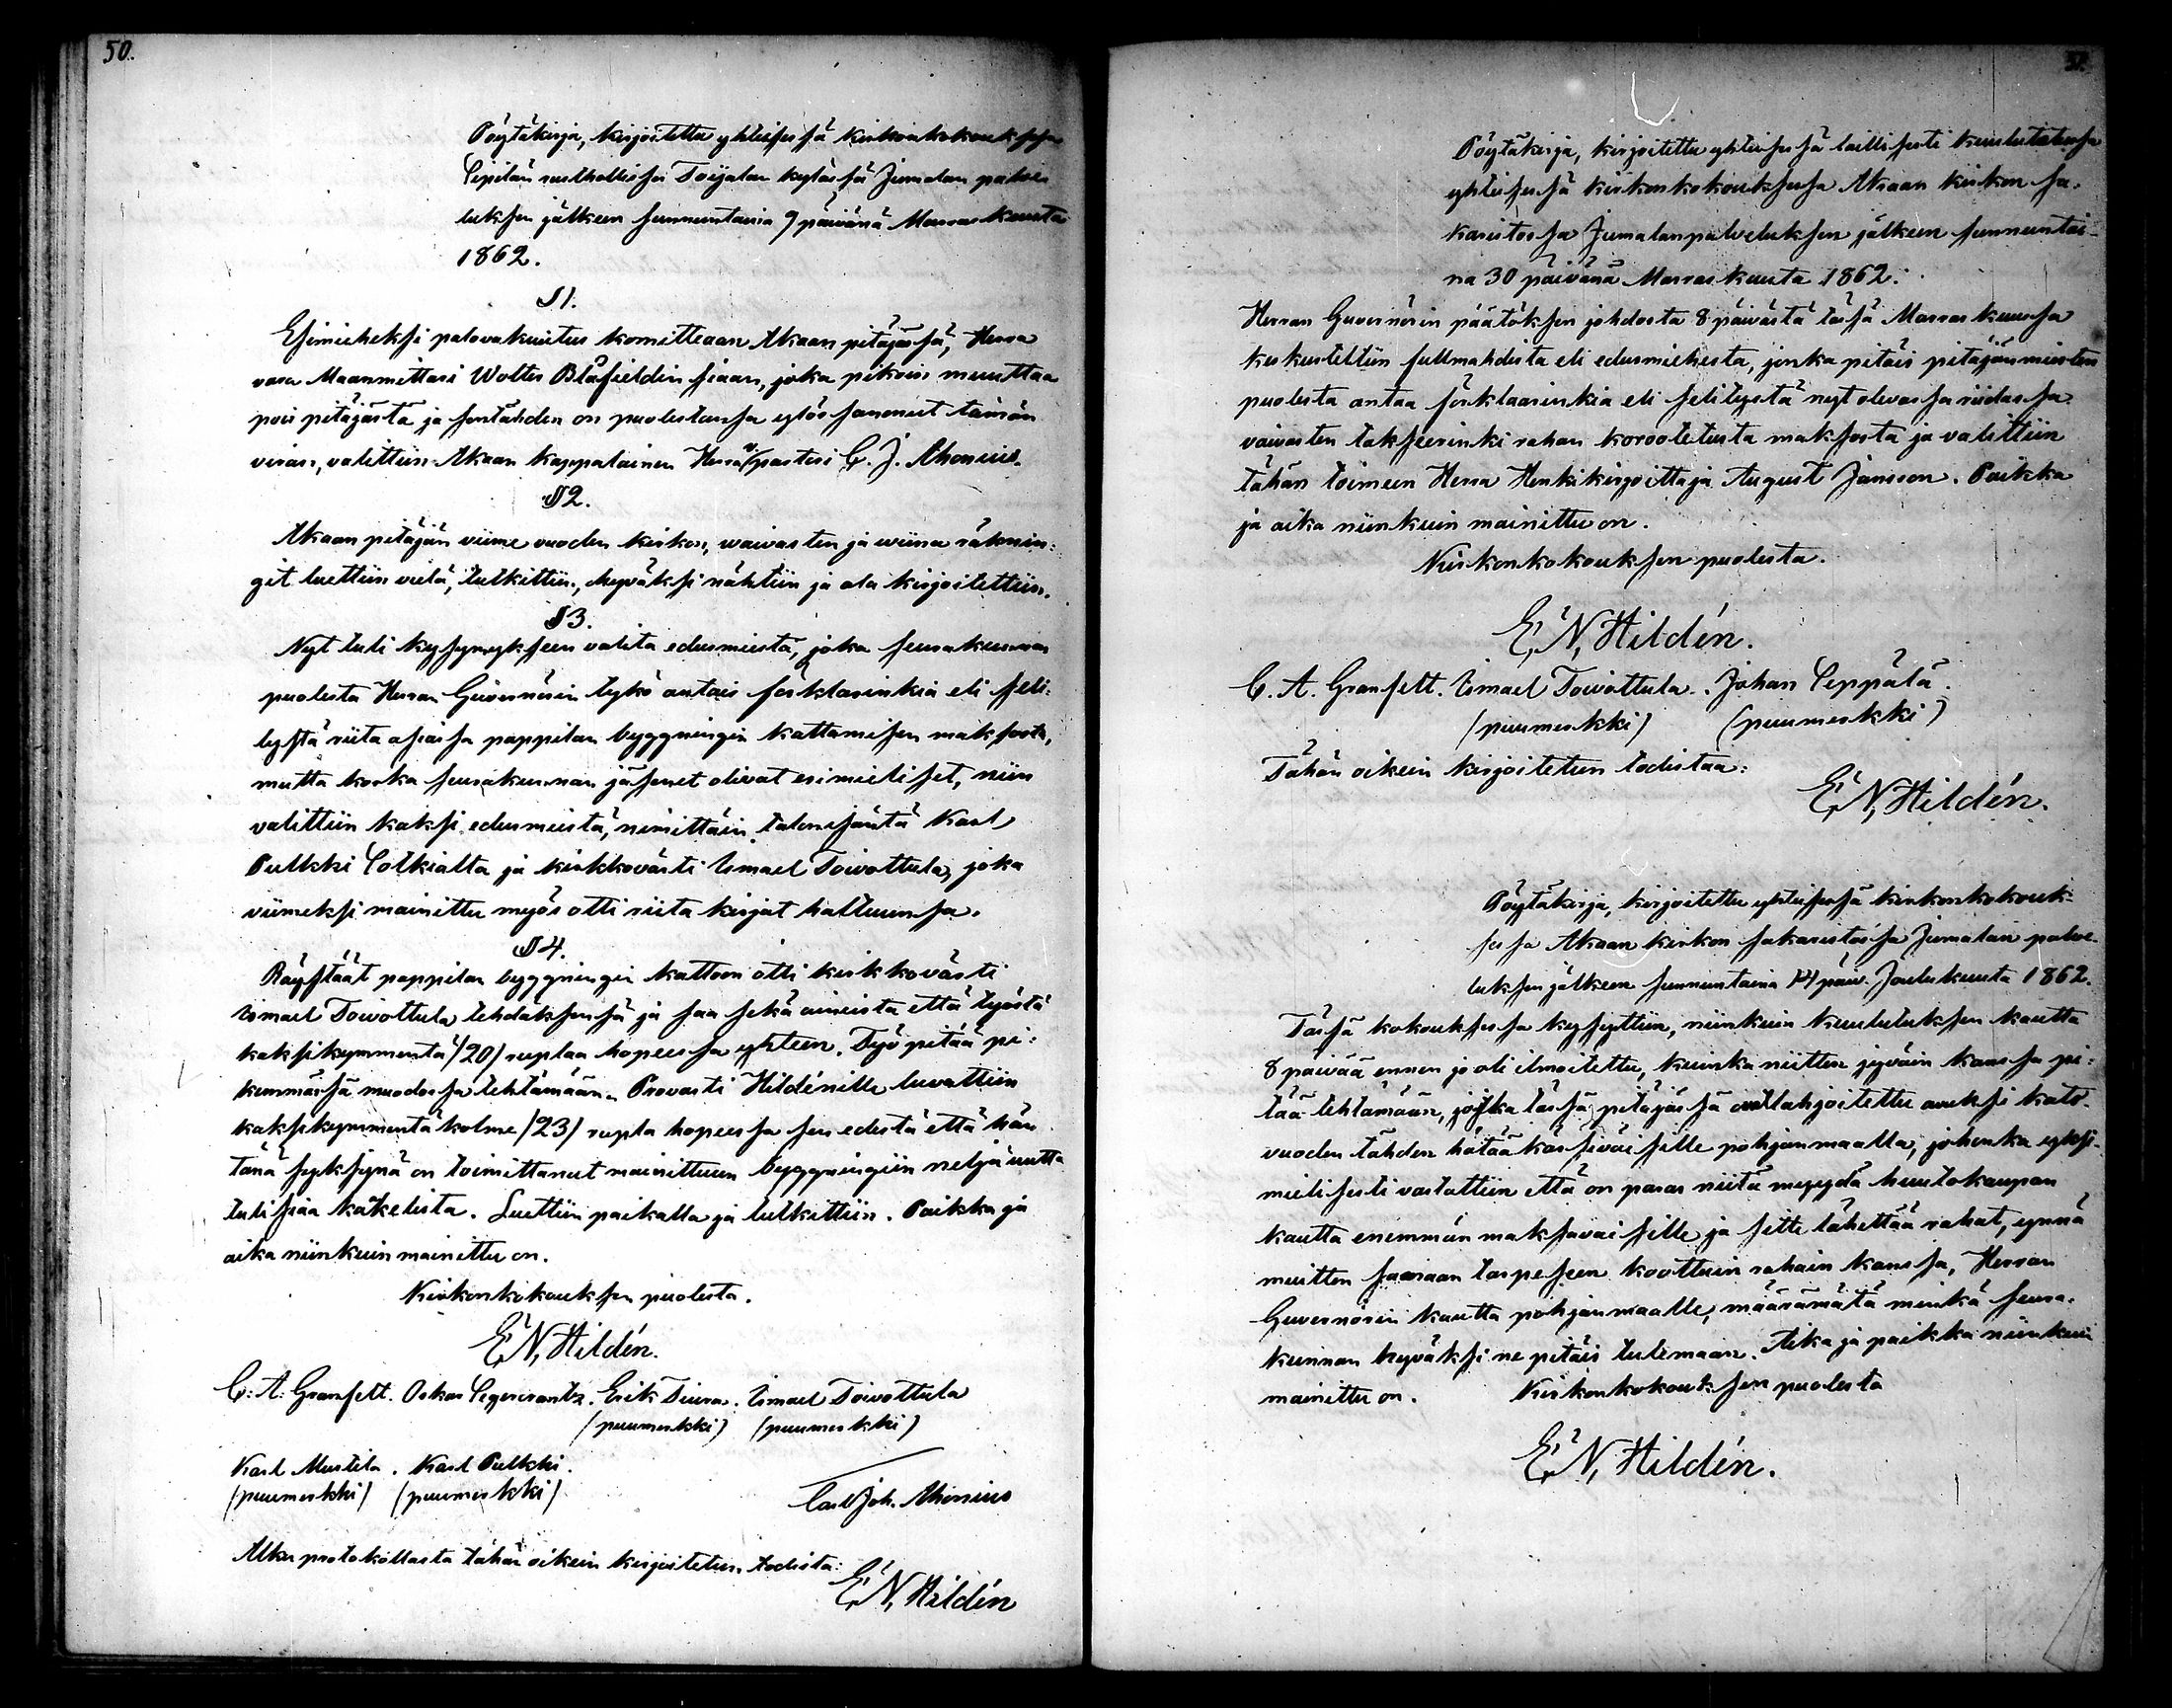 50.
Pöytäkirja, kirjoitettu yhteisessä kirkonkokouksessa
Lepilän rusthollissa Toijalan kylässä Jumalan palve-
luksen jälkeen sunnuntaina 9 päivänä Marraskuuta
1862.
§ 1.
Esimieheksi palovakuutus komitteaan Akaan pitäjässä, Herra
vara Maanmittari Wolter Blåfieldin siaan, joka pikois muuttaa
pois pitäjästä ja sentähden on puolestansa ylös sanonut tämän
viran, valittiin Akaan kappalainen Herra v/pastori C. J. Ahonius.
§ 2.
Akaan pitäjän viime vuoden kirkon, waivasten ja wiina räknin:
git luettiin vielä, tutkittiin, hyväksi nähtiin ja ala kirjoitettiin.
§ 3.
Nyt tuli kysymykseen valita edusmiestä, joka seurakunnan
puolesta Herran Guvernörin tykö antais förklarinkia eli seli:
tystä riita asiassa pappilan byggningin kattamisen maksosta,
mutta koska seurakunnan jäsenet olivat erimieliset, niin
valittiin kaksi edusmiestä, nimittäin talonisäntä Karl
Pulkki Lotkialta ja kirkkovärti Ismael Toivottula, joka
viimeksi mainittu myös otti riita kirjat haltuunsa.
§ 4.
Räystäät pappilan byggningin kattoon otti kirkkovärti
Ismael Toivottula tehdäksensä ja saa sekä aineista että työstä
kaksikymmentä /20/ ruplaa hopeessa yhteen. Työ pitää pi:
kemmässä muodossa tehtämään. Provasti Hildénille luvattiin
kaksikymmentä kolme /23/ rupla hopeessa sen edestä että hän
tänä syksynä on toimittanut mainittuun byggningiin neljä uutta
tulisiaa kakelista. Luettiin paikalla ja tutkittiin. Paikka ja
aika niinkuin mainittu on.
Kirkonkokouksen puolesta.
E, N, Hildén.
C: A: Granfelt. Oskar Legercrantz. Erik Tiura. Ismael Toivottula
(puumerkki) (puumerkki)
Karl Mustila. Karl Pulkki.
(puumerkki) (puumerkki)
Carl Joh. Ahonius
Alku protokollasta tähän oikein kirjoitetun todista:
E, N, Hildén
51.
Pöytäkirja, kirjoitettu yhteisessä laillisesti kuulutetussa
yhteisessä kirkonkokouksessa Akaan kirkon sa-
karistossa Jumalanpalveluksen jälkeen sunnuntai-
na 30 päivänä Marraskuuta 1862.
Herran Guvernörin päätöksen johdosta 8 päivästä tässä Marraskuussa
keskusteltiin fullmahdista eli edusmiehestä, jonka pitäis pitäjänmiesten
puolesta antaa förklaarinkia eli selitystä nyt olevassa riidassa
vaivasten takseerinki rahan korootetusta maksosta ja valittiin
tähän toimeen Herra Henkikirjoittaja August Jansson. Paikka
ja aika niinkuin mainittu on.
Kirkonkokouksen puolesta.
E, N, Hildén.
C. A. Granfelt. Ismael Toivottula. Johan Leppälä.
(puumerkki) (puumerkki)
Tähän oikein kirjoitetun todistaa:
E, N, Hildén.
Pöytäkirja, kirjoitettu yhteisessä kirkonkokouk-
sessa Akaan kirkon sakaristossa Jumalan palve-
luksen jälkeen sunnuntaina 14 päiv. Joulukuuta 1862.
Tässä kokouksessa kysyttiin, niinkuin kuulutuksen kautta
8 päivää ennen jo oli ilmoitettu, kuinka niitten jyväin kanssa pi:
tää tehtämään, jotka tässä pitäjässä ovat lahjoitettu avuksi kato-
vuoden tähden hätää kärsiväisille pohjanmaalla, johonka yksi-
mielisesti vastattiin että on paras niitä myydä huutokaupan
kautta enemmän maksavaisille ja sitte lähettää rahat, ynnä
muitten samaan tarpeseen koottuin rahain kanssa, Herran
Guvernörin kautta pohjanmaalle, määräämätä minkä seura-
kunnan hyväksi ne pitäis tulemaan. Aika ja paikka niinkuin
mainittu on. Kirkonkokouksen puolesta
E, N, Hildén.